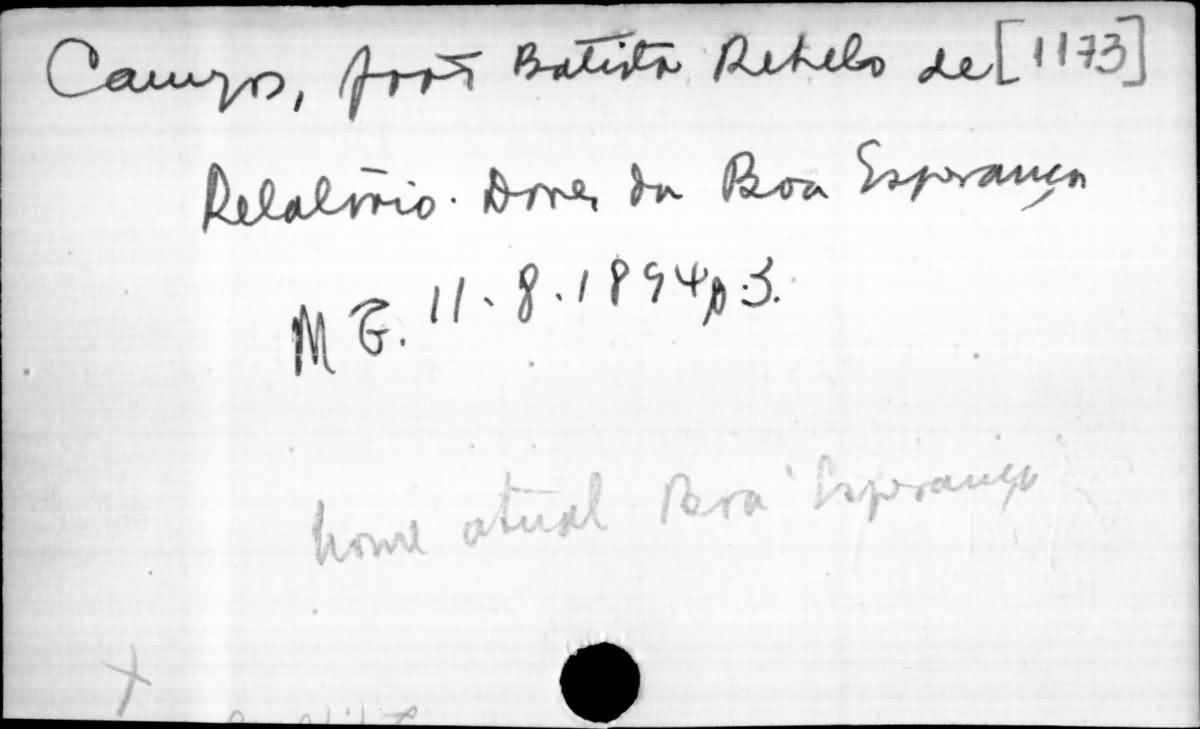 Campos, João Batista Rebelo de [1173]
Relatório. Dores da Boa Esperança
M G. 11.8.1894 p.3.
nome atual Boa Esperança
X